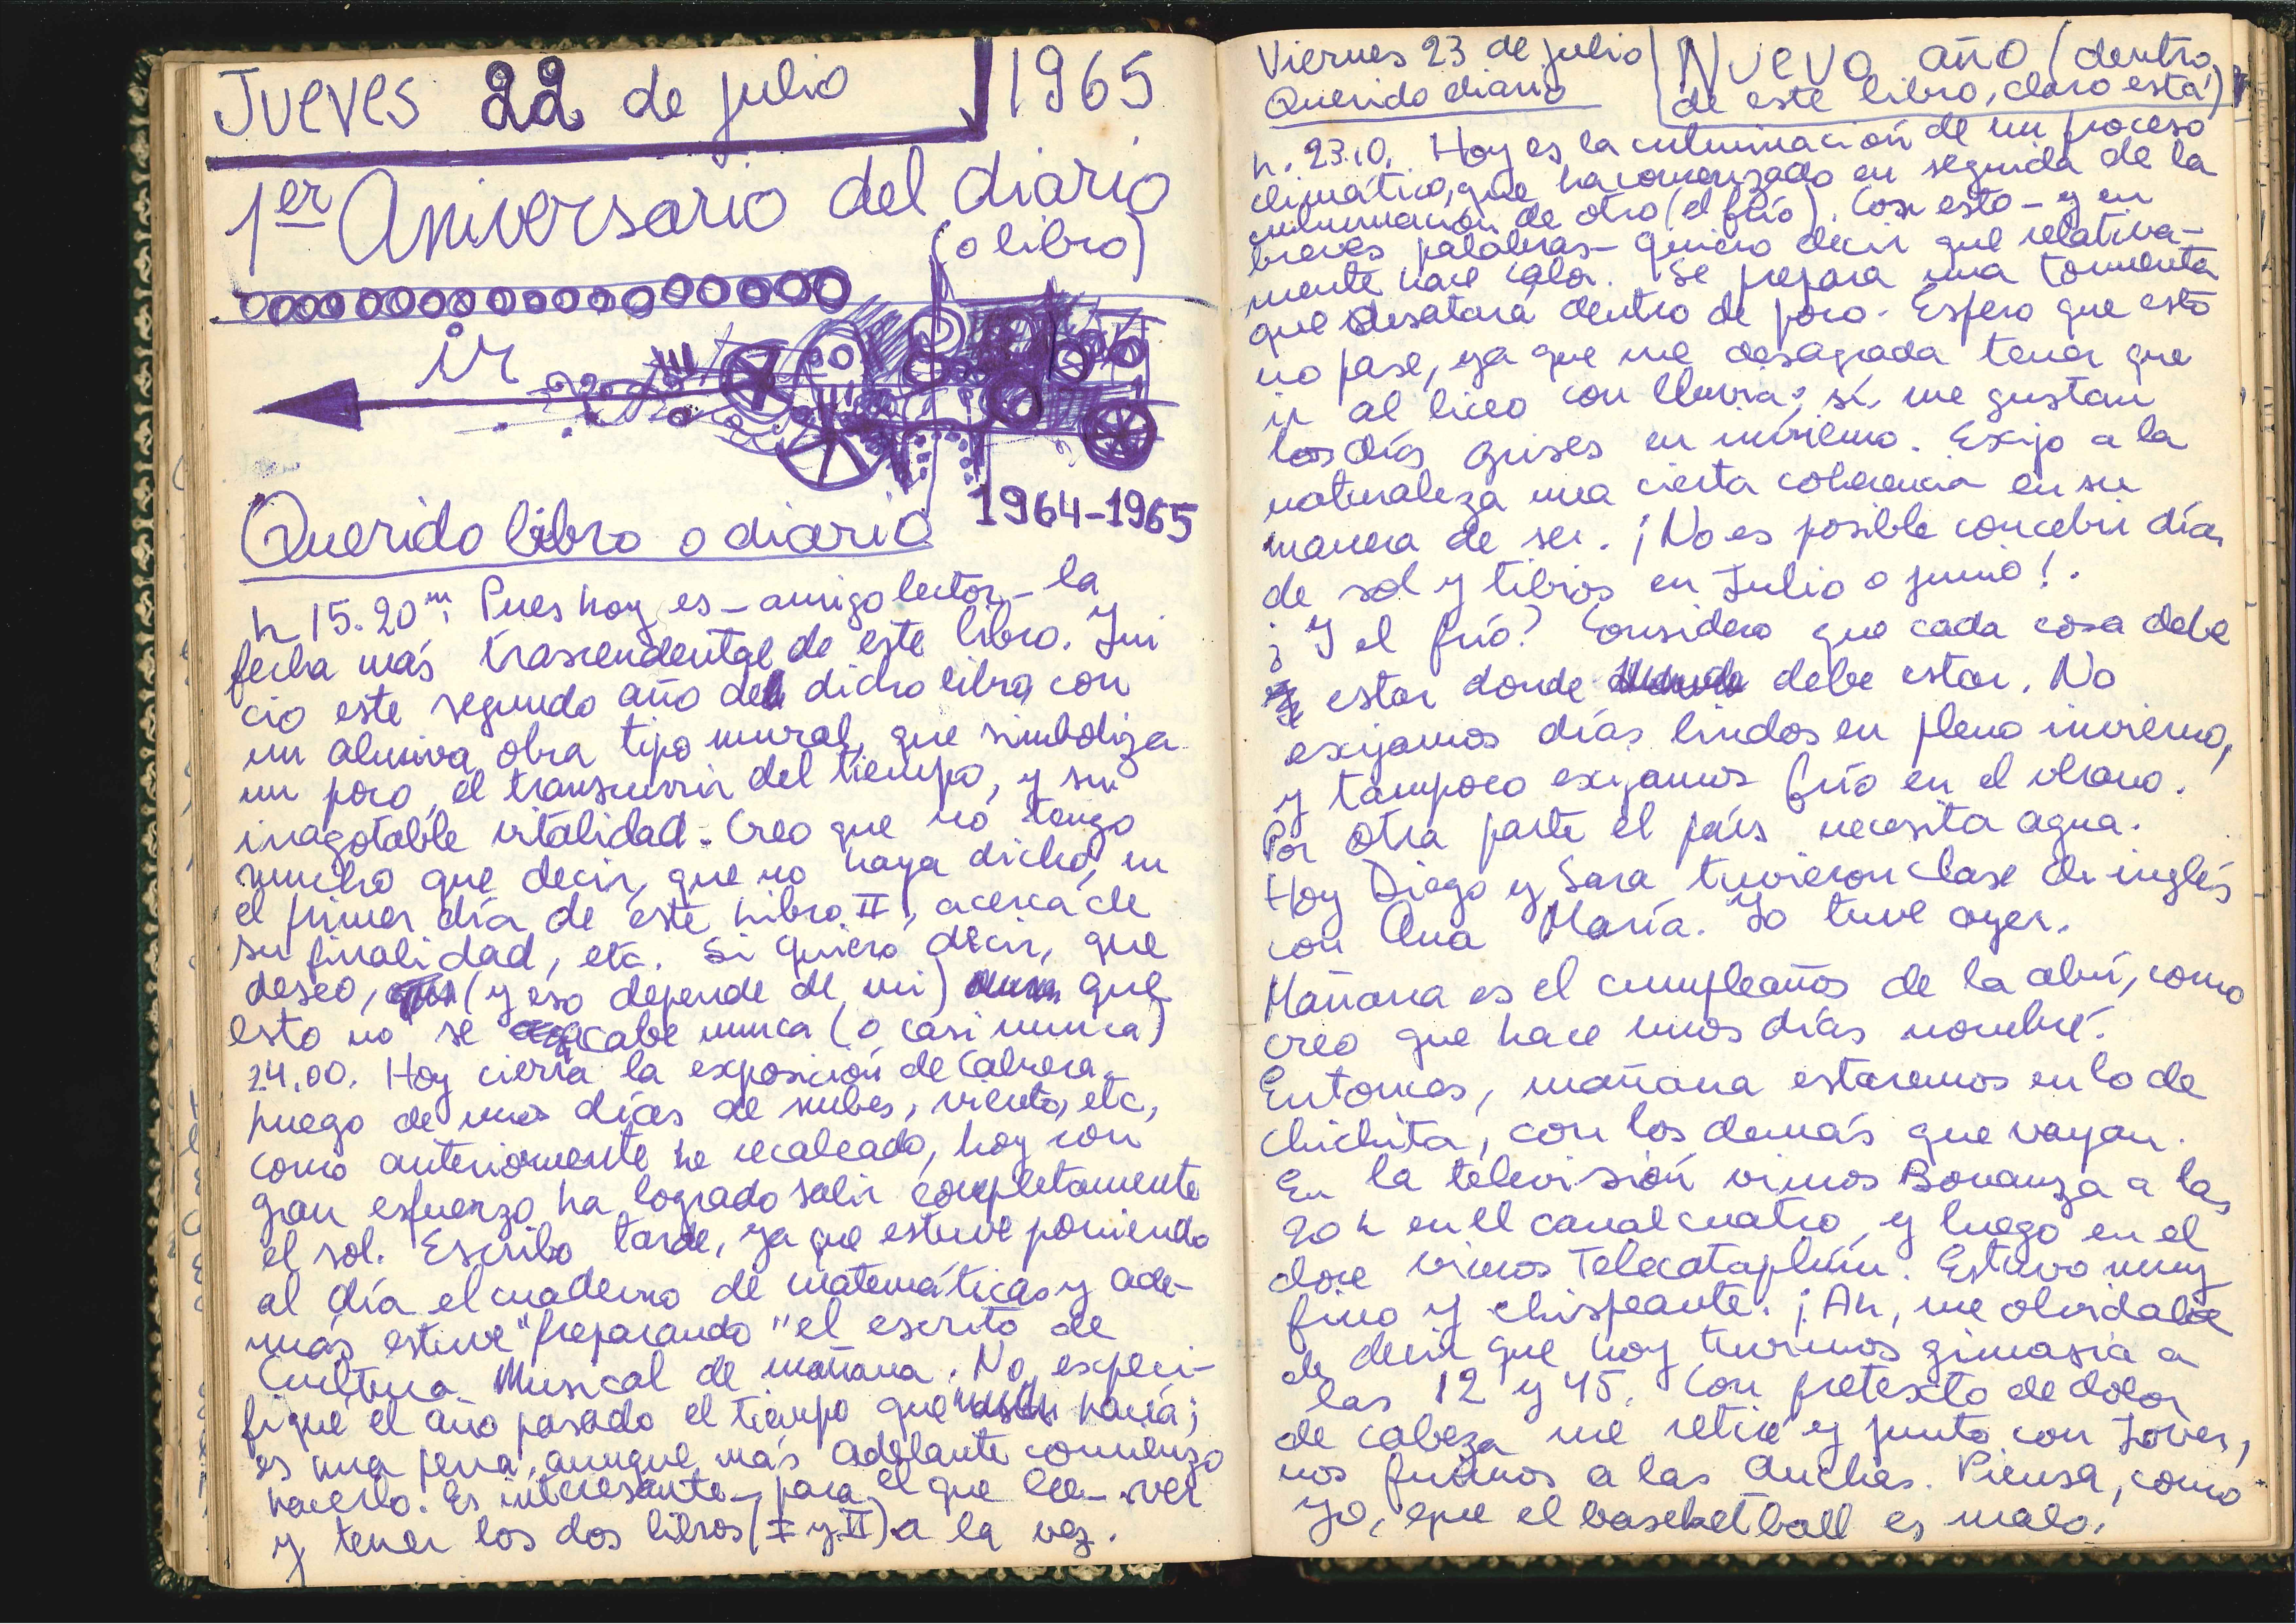 Jueves 22 de julio 1965
1er Aniversario del diario
(o libro)
ir
1964-1965
Querido libro o diario
h 15.20m. Pues hoy es - amigo lector - la
fecha más trascendental de este libro. Ini
cio este segundo año del dicho libro, con
un alusiva obra tipo mural, que simboliza
un poco, el transcurrir del tiempo, y su
inagotable vitalidad. Creo que no tengo
mucho que decir, que no haya dicho, en
el primer día de este libro II, acerca de
su finalidad, etc. Si quiero decir, que
deseo, (y eso depende de mi) que
esto no se acabe nunca (o casi nunca)
24.00. Hoy cierra la exposición de Cabrera.
Luego de unos días de nubes, viento, etc,
como anteriormente he recalcado, hoy con
gran esfuerzo ha logrado salir completamente
el sol. Escribo tarde, ya que estuve poniendo
al día el cuaderno de matemáticas y ade-
más estuve "preparando" el escrito de
Cultura Musical de mañana. No especi-
fiqué el año pasado el tiempo que hacía;
es una pena, aunque más adelante comienzo
hacerlo. Es interesante - para el que lee - ver
y tener los dos libros (I y II) a la vez.
Viernes 23 de julio
Querido diario
Nuevo año (dentro
de este libro, claro está)
h. 23.10. Hoy es la culminación de un proceso
climático, que ha comenzado en seguida de la
culminación de otro (el frío). Con esto - y en
breves palabras - quiero decir que relativa-
mente hace calor. Se prepara una tormenta
que desatará dentro de poco. Espero que esto
no pase, ya que me desagrada tener que
ir al liceo con lluvia; sí, me gustan
los días grises en invierno. Exijo a la
naturaleza una cierta coherencia en su
manera de ser. ¡No es posible concebir días
de sol y tibios en Julio o junio!.
¿Y el frío? Considero que cada cosa debe
estar donde debe estar. No
exijamos días lindos en pleno invierno,
y tampoco exijamos frío en el verano.
Por otra parte el país necesita agua.
Hoy Diego y Sara tuvieron clase de inglés
con Ana María. Yo tuve ayer.
Mañana es el cumpleaños de la abu, como
creo que hace unos días nombré.
Entonces, mañana estaremos en lo de
Chichita, con los demás que vayan.
En la televisión vimos Bonanza a las
20 h en el canal cuatro, y luego en el
doce vimos Telecataplúm. Estuvo muy
fino y chispeante. ¡Ah, me olvidaba
de decir que hoy tuvimos gimnasia a
las 12 y 45. Con pretexto de dolor
de cabeza me retiré y junto con
nos fuimos a las canchas. Piensa, como
yo, que el basketball es malo.